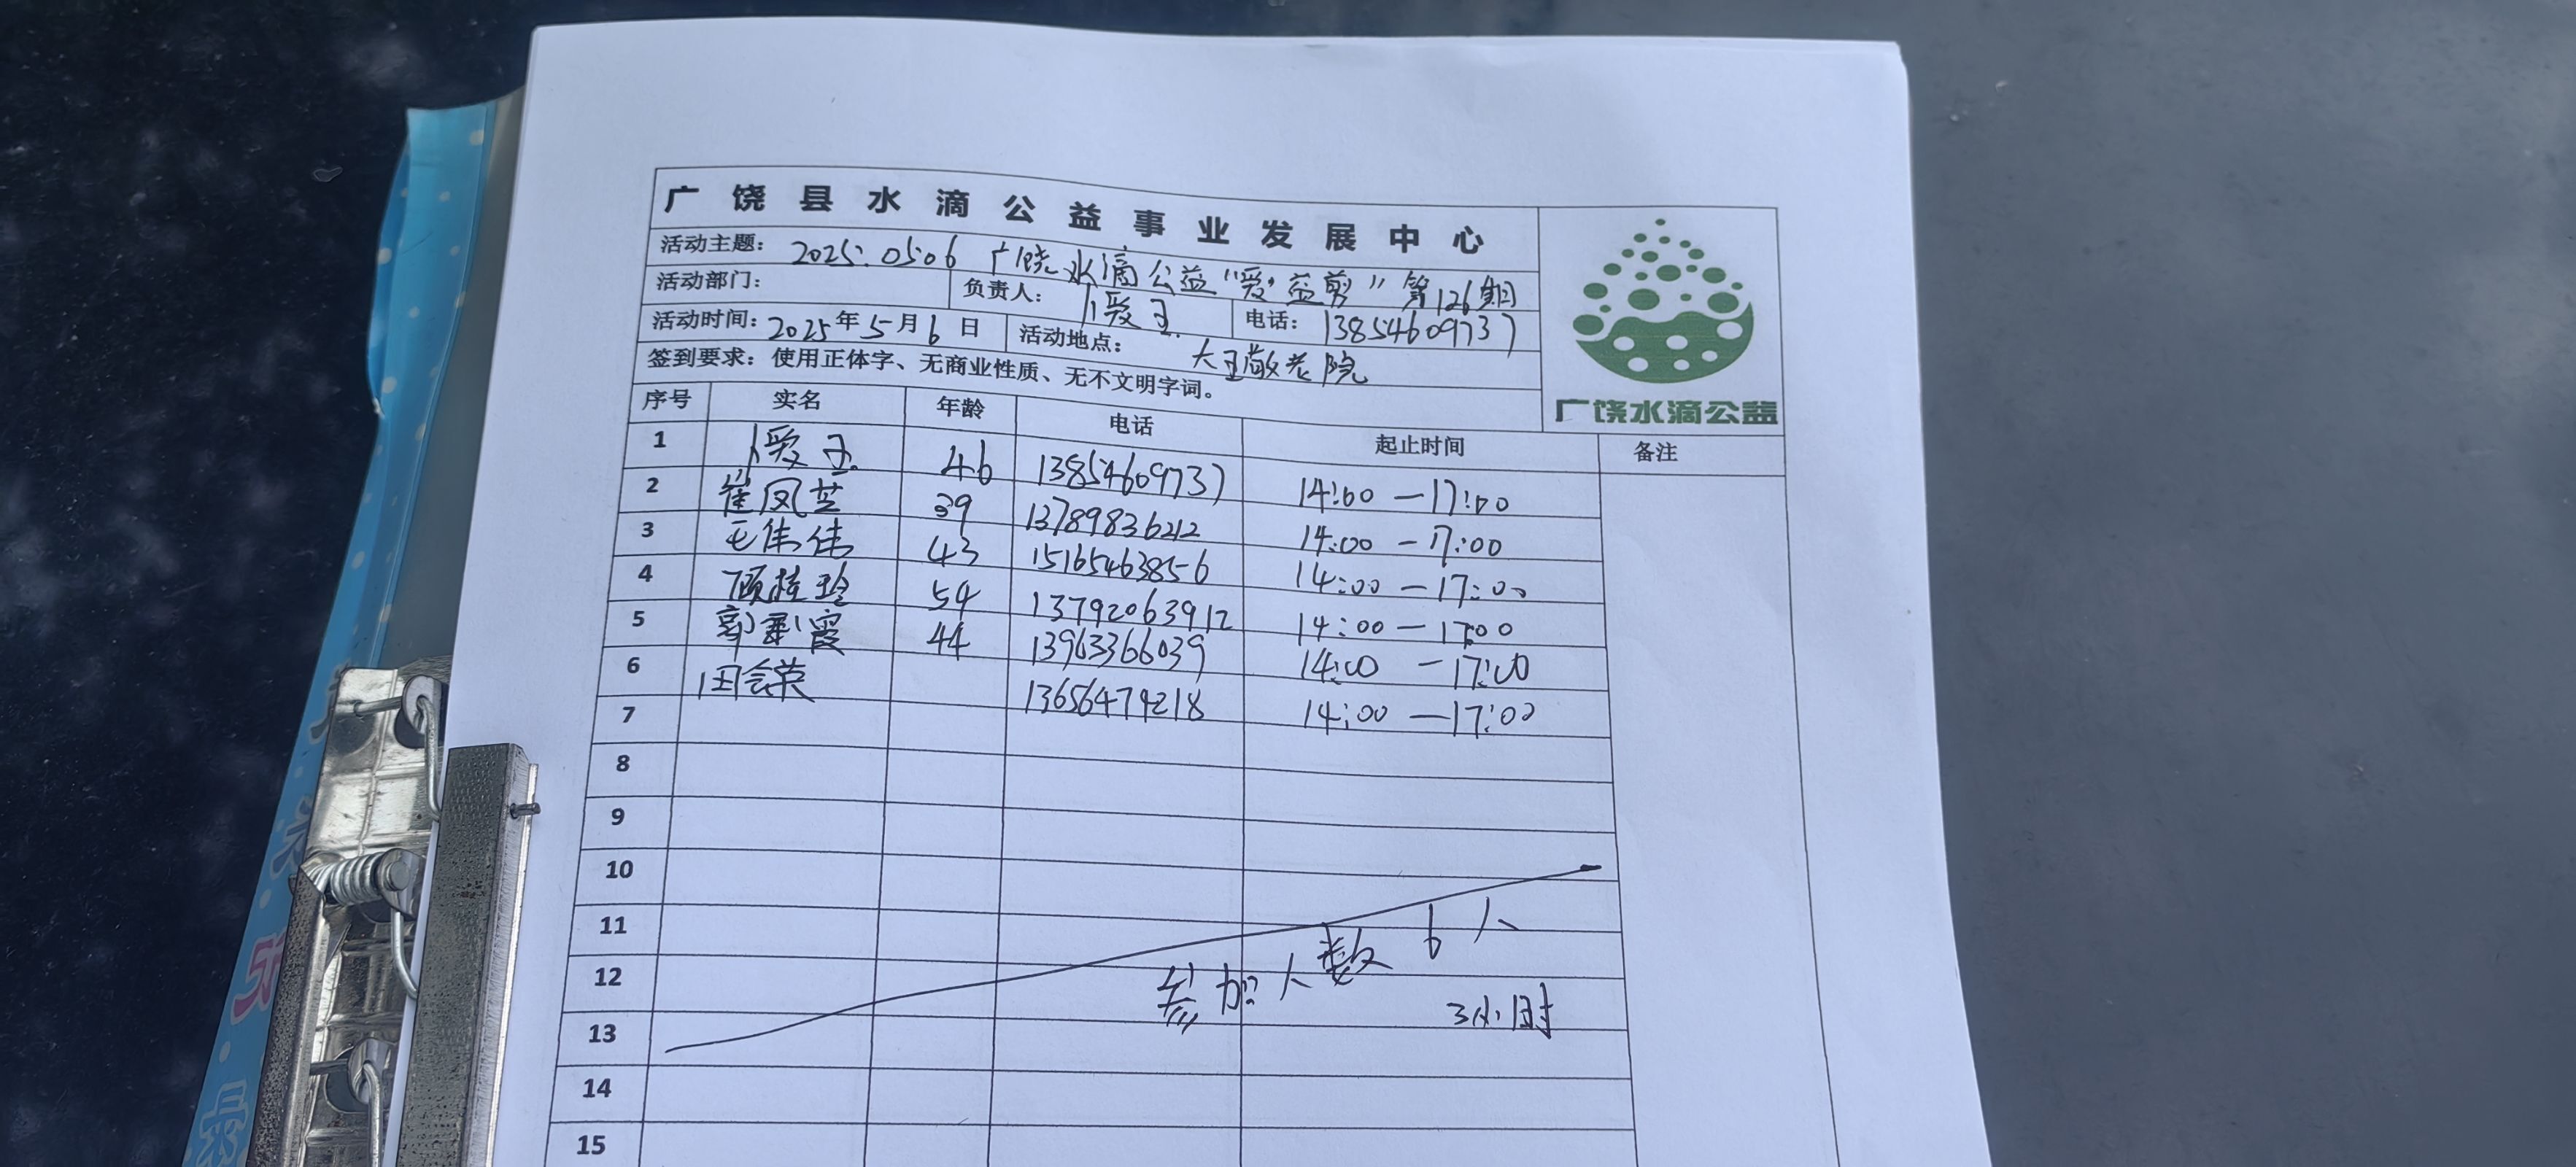 广饶县水滴公益事业发展中心
活动主题：2025.05.06 广饶水滴公益“爱·益剪”第126期
活动部门： 负责人：卜爱玉 电话：13854609737
活动时间：2025年5月6日 活动地点：大王敬老院
签到要求：使用正体字、无商业性质、无不文明字词。
广饶水滴公益
序号 实名 年龄 电话 起止时间 备注
1 卜爱玉 46 13854609737 14:00—17:00
2 崔凤芝 39 13789836212 14:00—17:00
3 毛伟伟 43 15165463856 14:00—17:00
4 顾桂玲 54 13792063912 14:00—17:00
5 郭霞 44 13963366039 14:00—17:00
6 田会荣 13656479218 14:00—17:00
7
8
9
10
11
参加人数6人
12
3小时
13
14
15